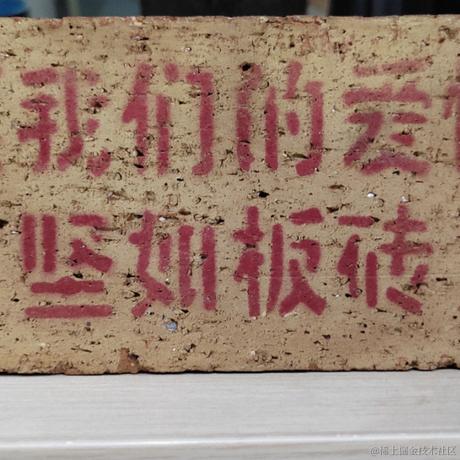 我们的爱
坚如板砖
@稀土掘金技术社区